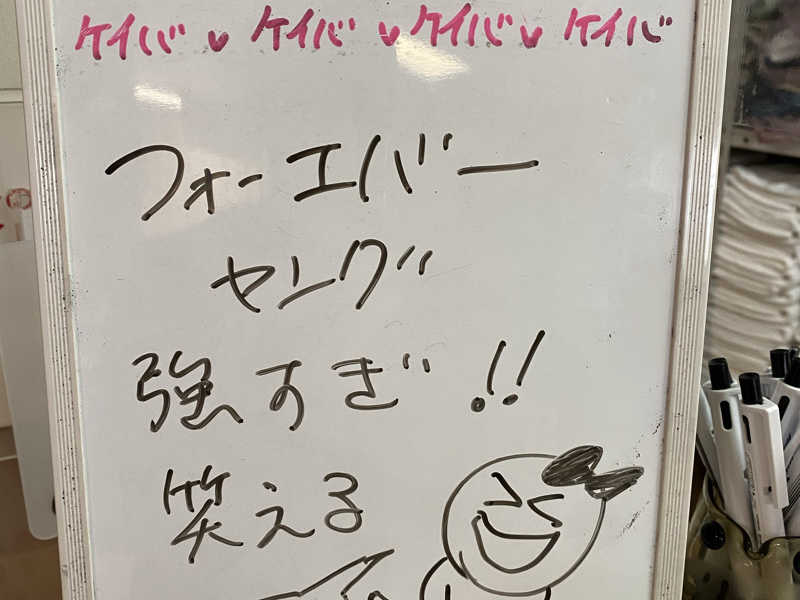 ケイバ♥ケイバ♥ケイバ♥ケイバ
フォーエバー
ヤング
強すぎ!!
笑える